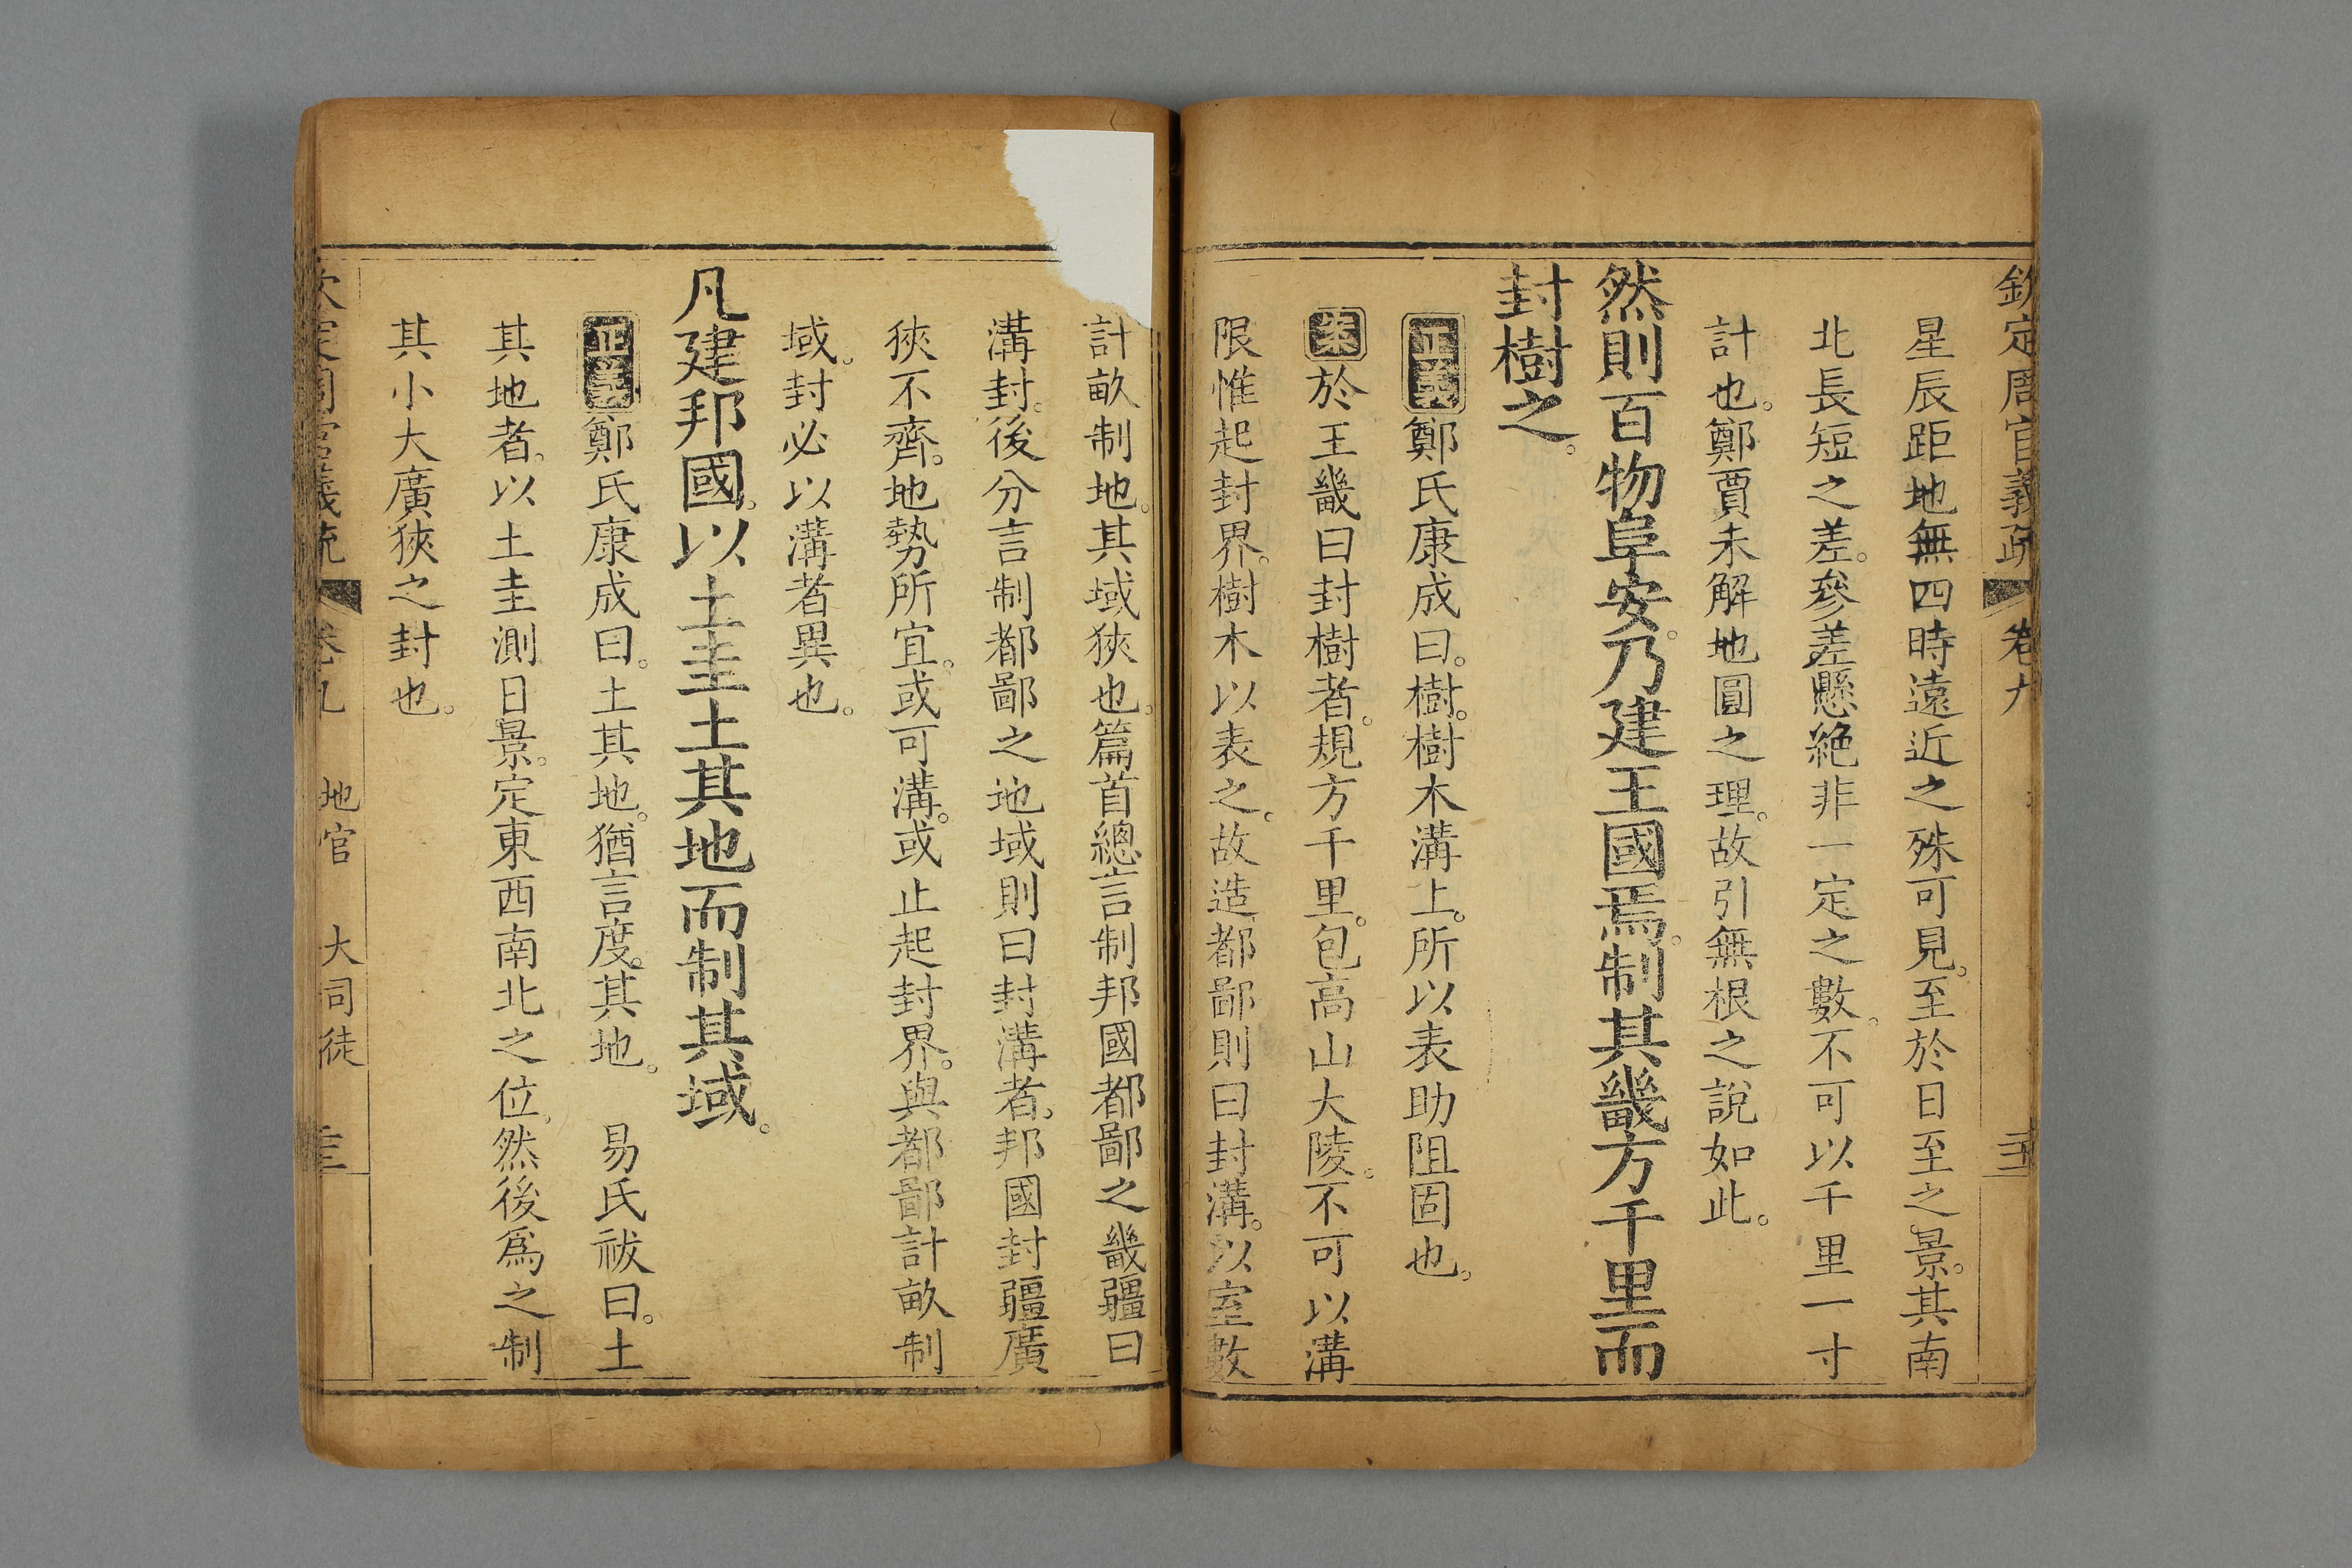 欽定周官義疏 卷九
星辰距地無四時遠近之殊可見。至於日至之景。其南
北長短之差。參差懸絶非一定之數。不可以千里一寸
計也。鄭賈未解地圓之理。故引無根之說如此。
然則百物阜安。乃建王國焉。制其畿方千里而
封樹之。
正義鄭氏康成曰。樹。樹木溝上。所以表助阻固也。
案於王畿曰封樹者。規方千里。包高山大陵。不可以溝
限惟起封界。樹木以表之。故造都鄙則曰封溝。以室數
計畝制地。其域狹也。篇首總言制邦國都鄙之畿疆曰
溝封。後分言制都鄙之地域則曰封溝者。邦國封疆廣
狹不齊。地勢所宜。或可溝。或止起封界。與都鄙計畝制
域。封必以溝者異也。
凡建邦國。以土圭土其地而制其域。
正義鄭氏康成曰。土其地。猶言度。其地。 易氏祓曰。土
其地者。以土圭測日景。定東西南北之位。然後爲之制
其小大廣狹之封也。
欽定周官義疏 卷九 地官 大司徒